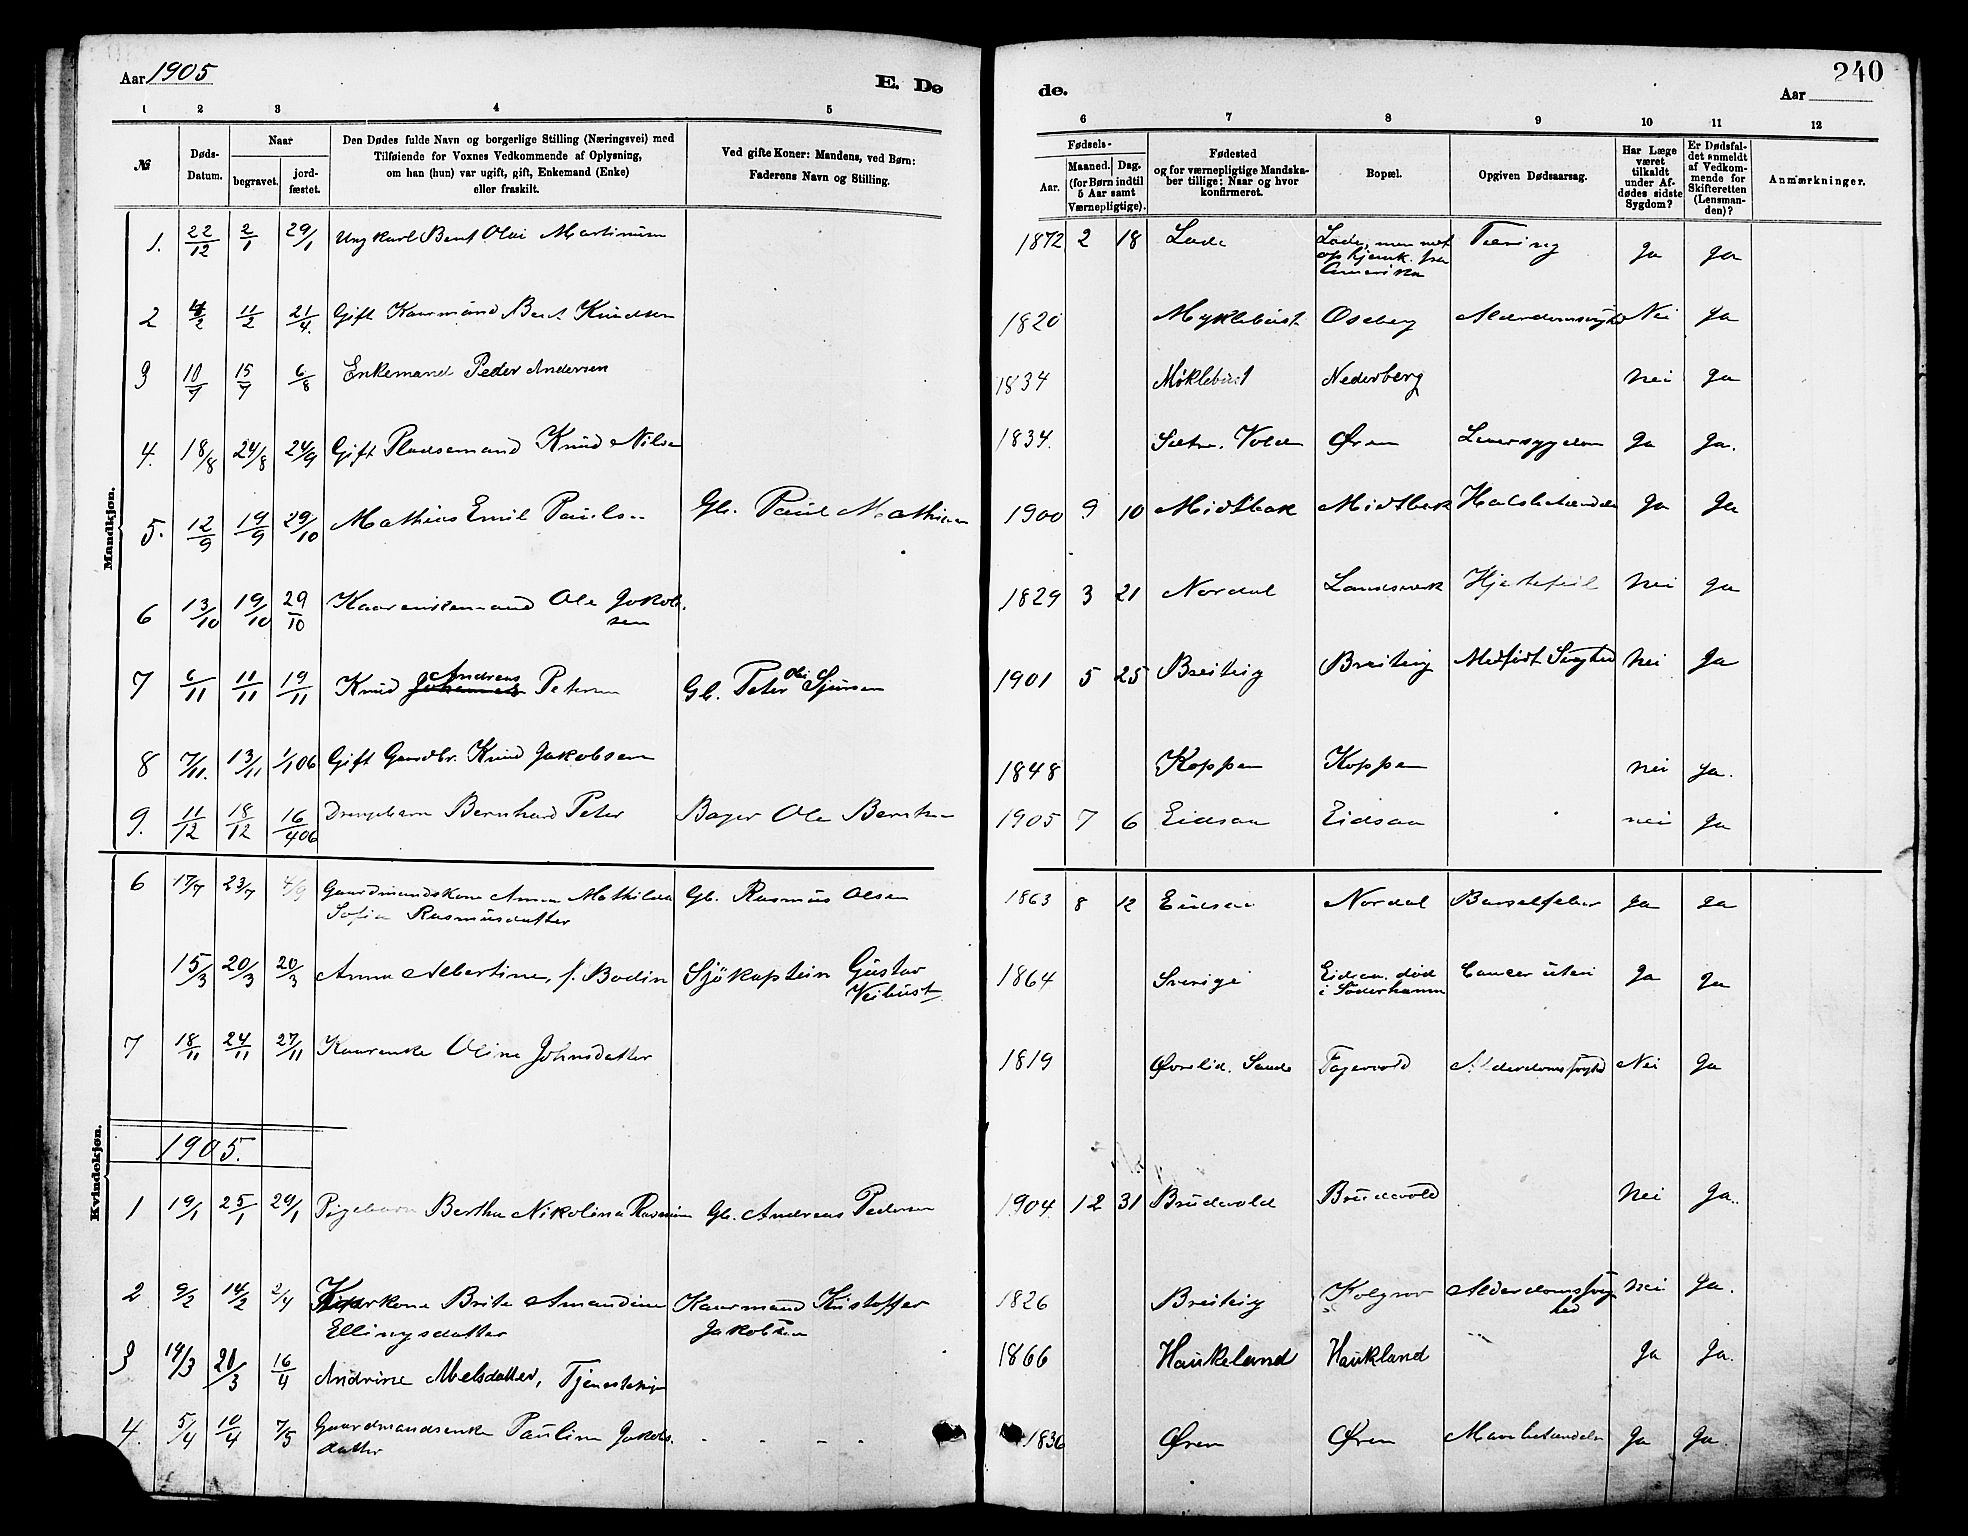 Aar 1905
E. Dø
de.
240
Aar
1 2 3 4 5 6 7 8 9 10 11 12
№
Døds-Datum.
Naar
begravet.
jordfæstet.
Den Dødes fulde Navn og borgerlige Stilling (Næringsvei) med
Tilføiende for Voxnes Vedkommende af Oplysning,
om han (hun) var ugift, gift, Enkemand (Enke)
eller fraskilt.
Ved gifte Koner: Mandens, ved Børn:
Faderens Navn og Stilling.
Fødsels-
Aar.
Maaned. Dag.
(for Børn indtil
5 Aar samt
Værnepligtige).
Fødested
og for værnepligtige Mandskaber tillige: Naar og hvor
konfirmeret.
Bopæl.
Opgiven Dødsaarsag.
Har Læge
været
tilkaldt
under Afdødes sidste
Sygdom?
Er Dødsfaldet anmeldt
af Vedkommende for
Skifteretten
(Lensmanden)?
Anmærkninger.
Mandkjøn.
1. 22/12 2/1 29/1 Ungkarl Bent Olai Martinius 1872 2 18 Lade Tæring Ja Ja
2 11/2 21/4. Gift Kaarmand Bent Knudsen 1820 Myklebust Oseberg Nei Ja
3 10/7 15/7 6/8 Enkemand Peder Andersen 1834 Møklebust Nederberg Nei Ja
4. 18/8 24/8 24/9 Gift Pladsemand Knud Nilsen 1834. Øren Leversygdom Ja Ja.
5. 12/9 19/9 29/10 Mathias Emil Paulsen Gb. Paul Mathisen 1900 9 10 Midtbak Midtbak Halsbetændelse Ja Ja
6 13/10 19/10 29/10 Ole Jakobsen 1829 3 21 Nordal Hjertefeil Nei Ja
7 6/11 11/11 19/11 Knud Andreas Petersen Gb. Peter Oli Sjursen 1901 5 25 Breiteig Breiteig Medfødt Svaghed Nei Ja
8 7/11. 13/11 1/1 06 Gift Gaardbr. Knud Jakobsen 1848 Koppen Koppen Nei Ja.
9. 11/12 18/12 16/4 06 Drengebarn Bernhard Peter Bager Ole 1905 7 6 Eidsaa Eidsaa nei Ja
Kvindekjøn.
6 17/7 23/7 4/9 Gaardmandskone Anna Mathilda Gb. Rasmus Olsen 1863 8 12 Eidsaa Nordal Barselfeber Ja Ja
Sofia Rasmusdatter
15/3 20/3 20/3 Anna Albertine, f. Bodin Sjökaptein Gustav Veibust 1864 Sverige Eidsaa, död i Söderhamn Cancer uteri Ja Ja
7 18/11 24/11 27/11 Kaarenke Oline Johnsdatter 1819 Øvrelid. Sande Fagervold Alderdomssvaghed Nei Ja
1905.
1 19/1 25/1 29/1 Pigebarn Bertha Nikolina Gb. Andreas Pedersen 1904. 12 31 Brudevold Brudevold Nei Ja.
2 9/2 14/2 2/4 Brite Amandine Kaarmand Kristoffer 1826 Breiteig Kolgrov Alderdomssvaghed Nei Ja.
Ellingsdatter Jakobsen
3 14/3 20/3 16/4 Andrine Abelsdatter, Tjenestepige 1866 Haukeland Haukland Ja Ja.
4. 5/4 10/4 7/5 Gaardmandsenke Pauline Jakobsdatter 1836 Øren Øren Mavebetændelse Ja Ja.